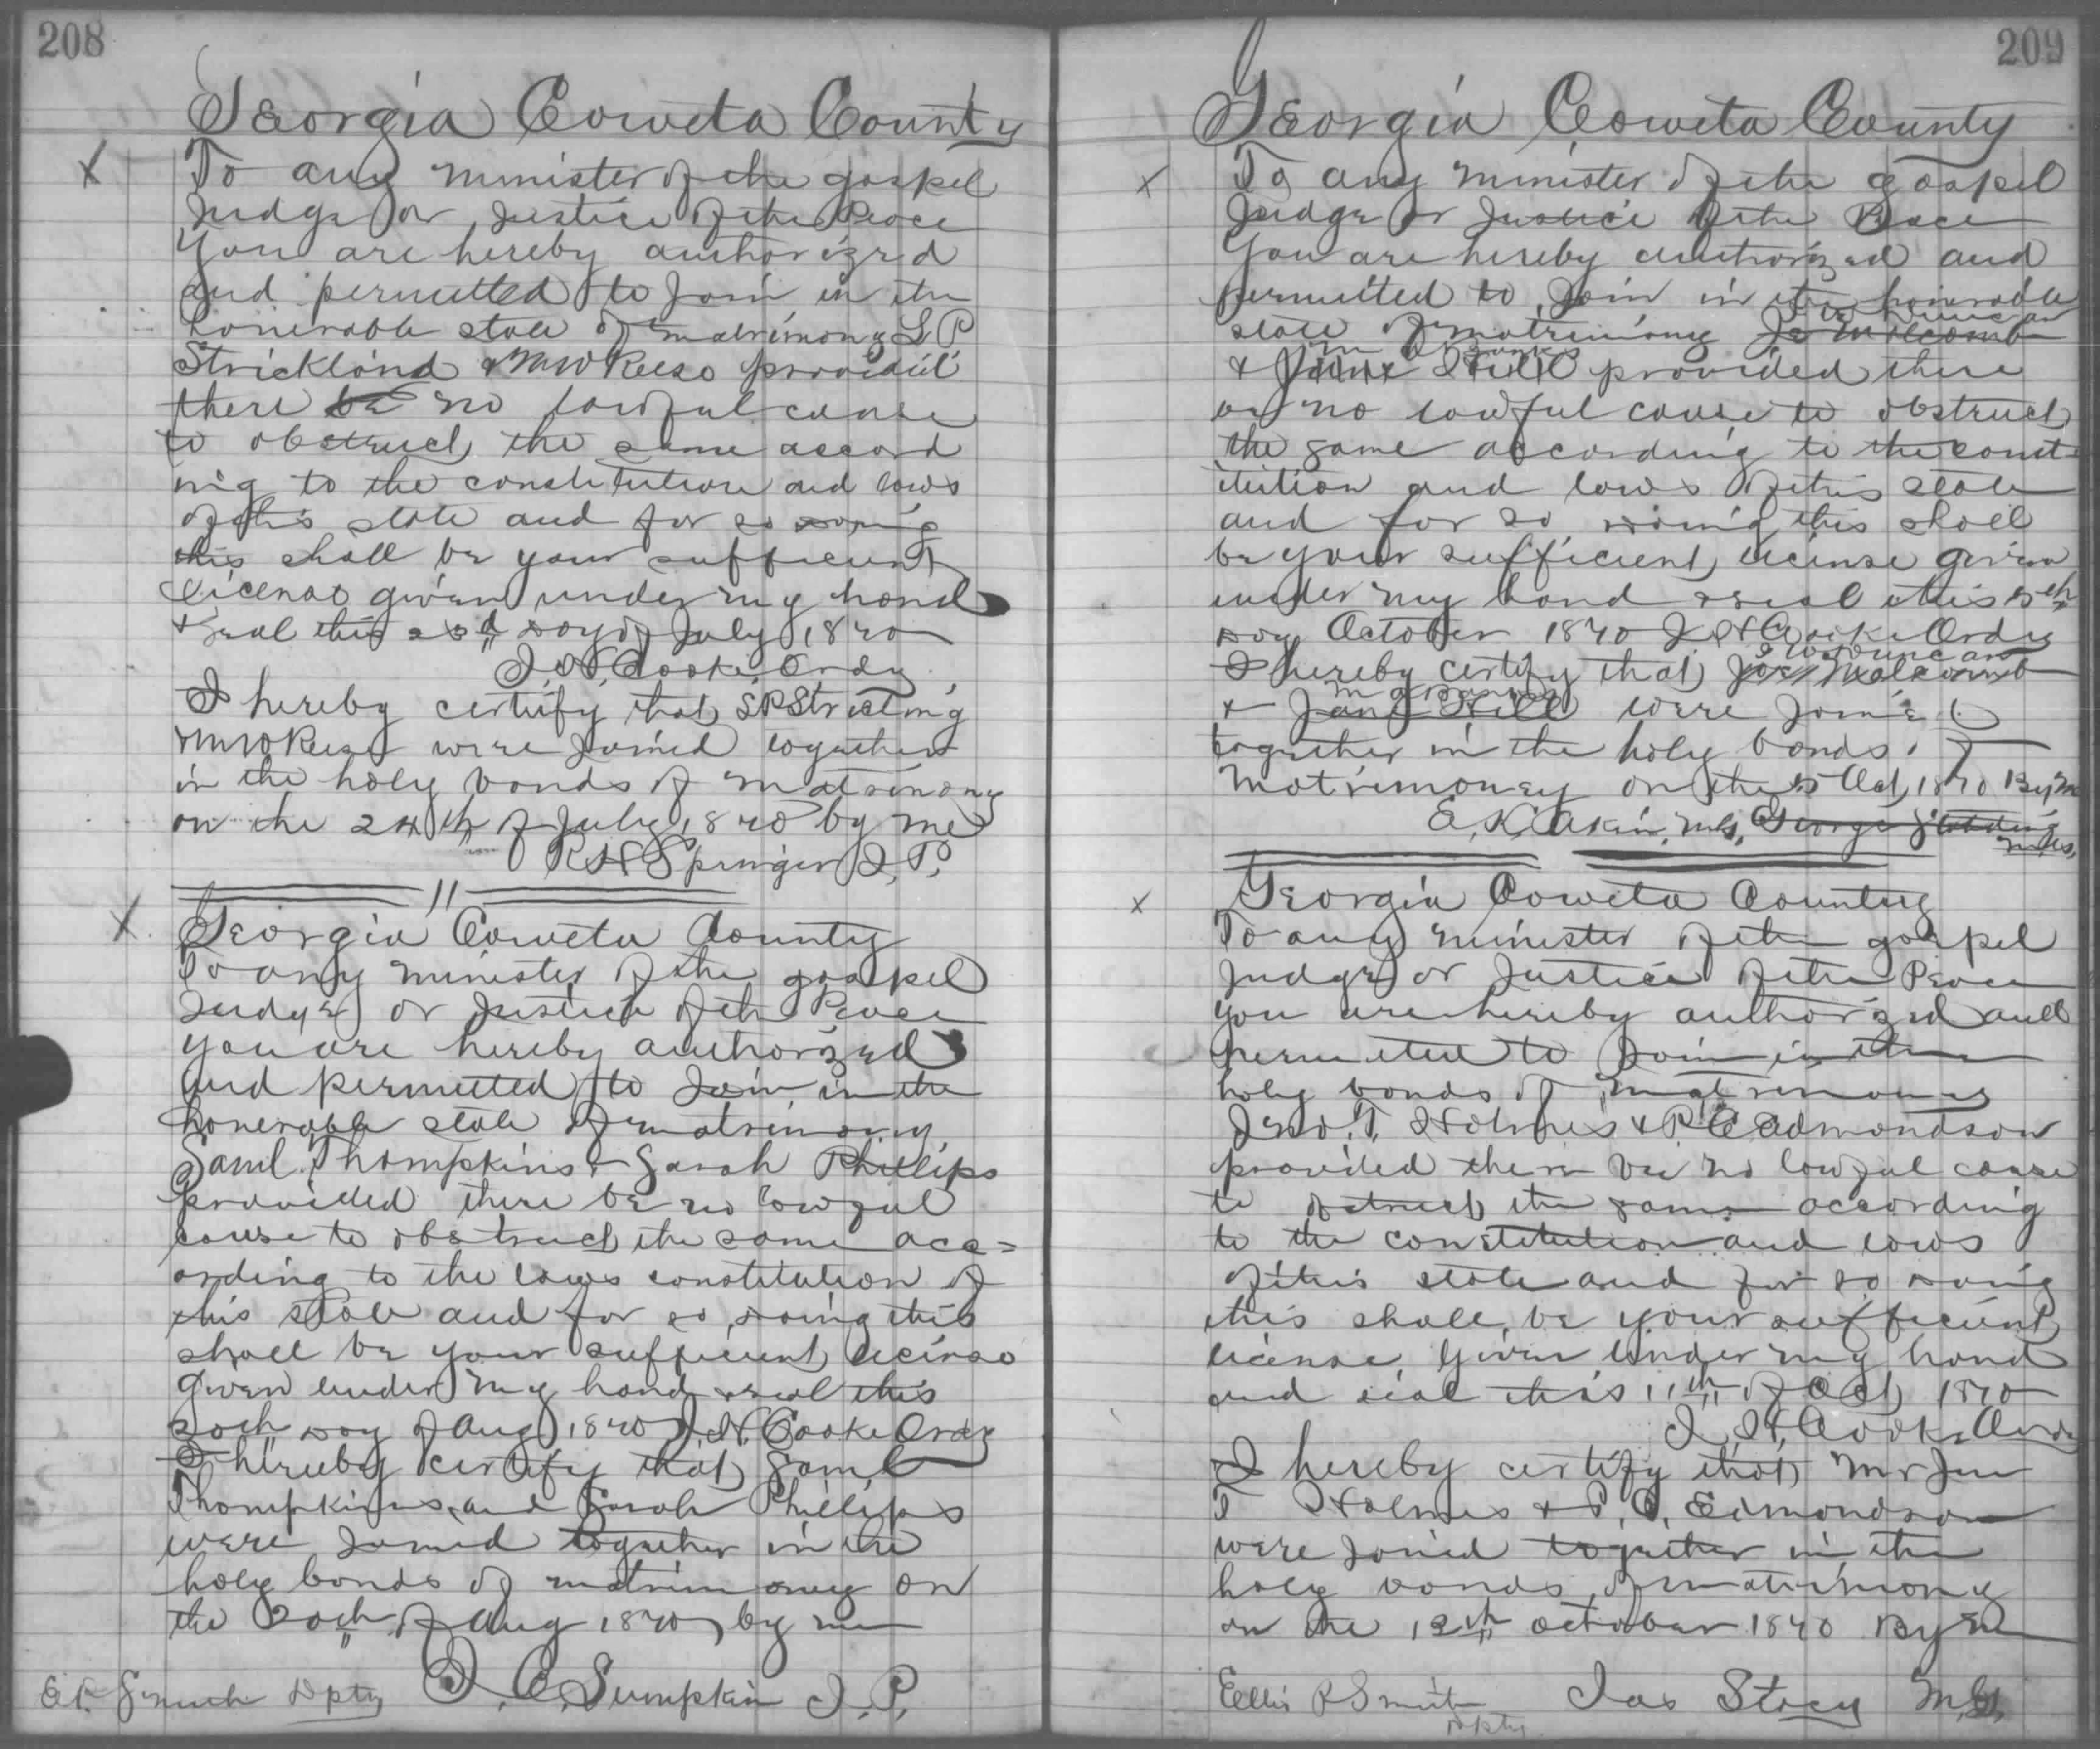 208
Georgia Coweta County
X To any minister of the gospel
Judge or Justice of the Peace
You are hereby authorized
and permitted to Join in the
honerable state of matrimony L P
Strickland & M W Reese provided
there be no lawful cause
to obstruct the same accord
ing to the constitution and laws
of this state and for so doing
this shall be your sufficient
license given under my hand
& seal this 23d day of July 1870
J. H. Cooke, Ordy
I hereby certify that S P
M W Reese were Joined together
in the holy bonds of matrimony
on the 24th of July 1870 by me
R H Springer J. P.
X Georgia Coweta County
To any minister of the gospel
Judge or Justice of the Peace
you are hereby authorized
and permitted to Join in the
honerable state of matrimony
Saml. Thompkins & Sarah Phillips
provided there be no lawful
cause to obstruct the same acc=
ording to the laws constitution of
this state and for so doing this
shall be your sufficient license
given under my hand & seal this
20th day of Aug 1870 J. H. Cooke Ordy
I hereby certify that Saml
Thompkins and Sarah Phillips
were Joined together in the
holy bonds of matrimony on
the 20th of Aug 1870 by me
Dpty J. P.
209
Georgia Coweta County
X To any minister of the gospel
Judge or Justice of the Peace
You are hereby authorized and
permitted to Join in the honorable
state of matrimony Jo Malcomb
& Jane Hill provided there
be no lawful cause to obstruct
the same according to the const=
itution and laws of this state
and for so doing this shall
be your sufficient license given
under my hand & seal this 5th
day October 1870 J H Cooke Ordy
I hereby certify that Jos Malcomb
& Jane Hill were Joined
together in the holy bonds of
Matrimoney on the 5 Oct, 1870 By me
E. K. Akin, M G, George
X Georgia Coweta County
To any minister of the gospel
Judge or Justice of the Peace
you are hereby authorized and
permitted to Join in the
holy bonds of matrimony
Jno. T. Holmes & P. C Edmondson
provided there be no lawful cause
to obstruct the same according
to the constitution and laws
of this state and for so doing
this shall be your sufficient
license. Given under my hand
and seal this 11th of Oct 1870
J. H. Cooke Ordy
I hereby certify that Mr Jno
T Holmes & P. C. Edmondson
were Joined together in the
holy bonds of matrimony
on the 12th October 1870 By me
Ellis R Smith Jas Stacy M. G.
Dpty